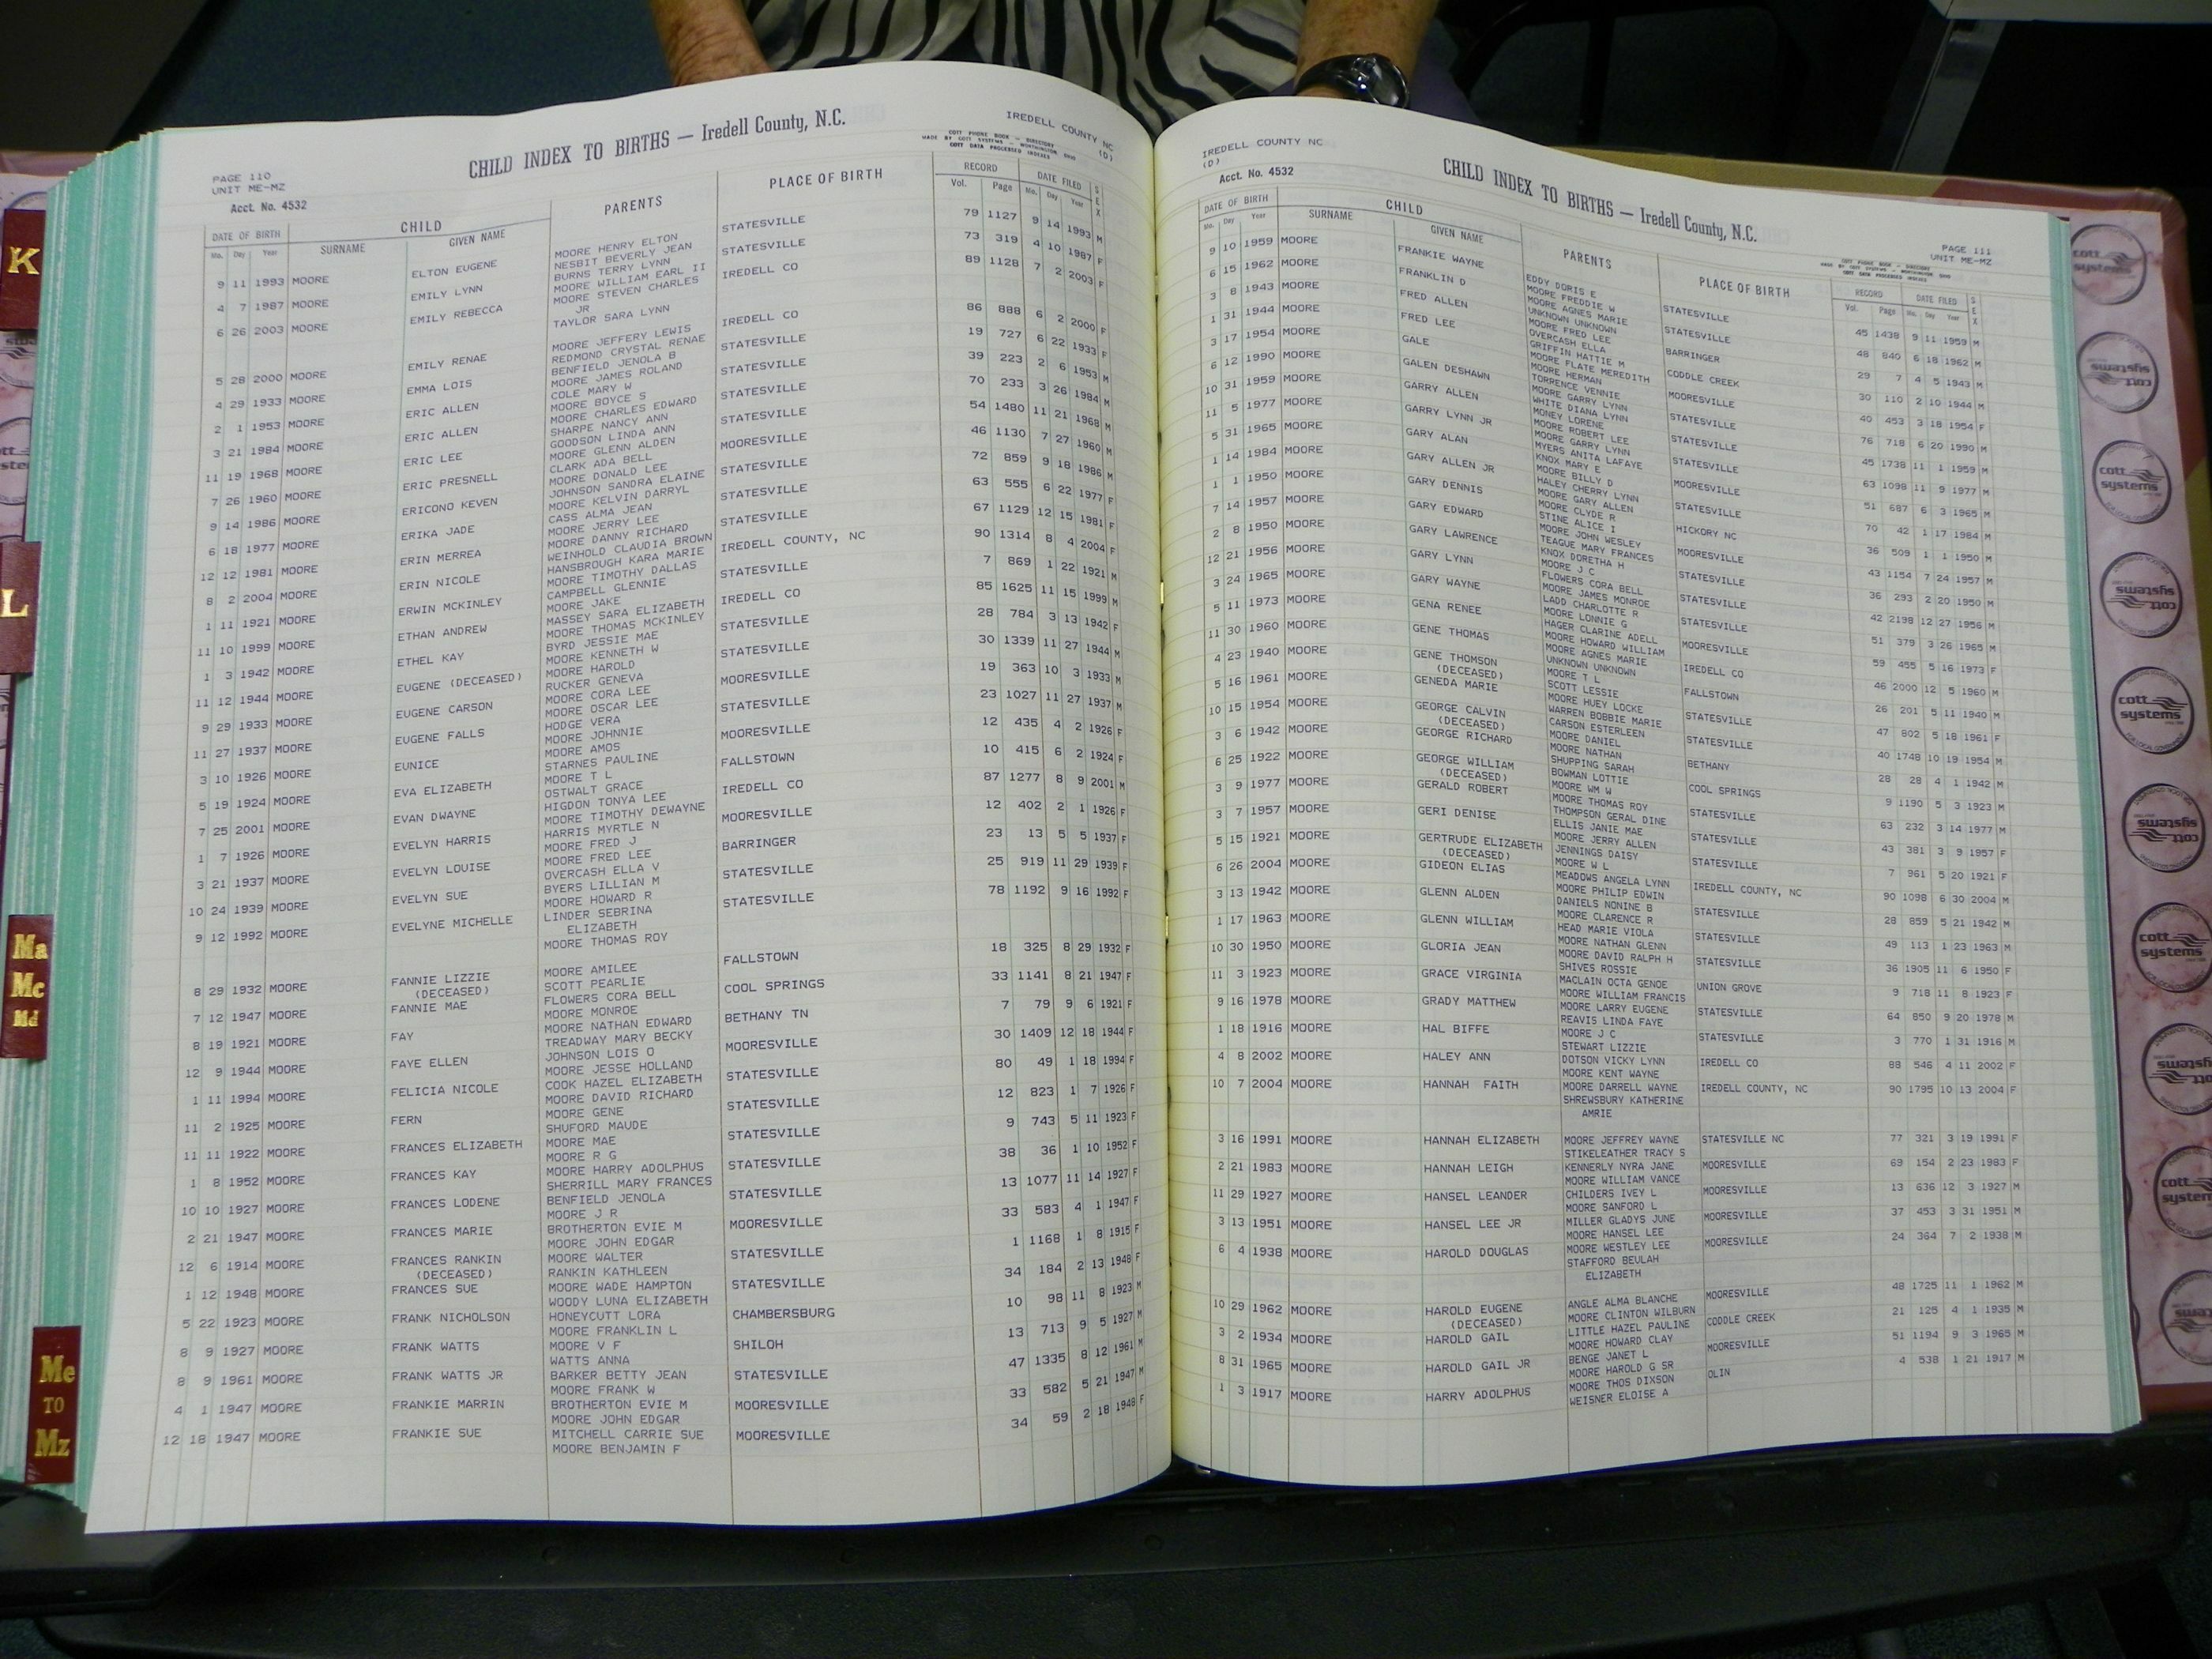 IREDELL COUNTY NC
(D)
CHILD INDEX TO BIRTHS — Iredell County, N.C.
COTT PHONE BOOK — DIRECTORY
MADE BY COTT SYSTEMS — WORTHINGTON, OHIO
COTT DATA PROCESSED INDEXES
PAGE 110
UNIT ME-MZ
Acct. No. 4532
DATE OF BIRTH CHILD PARENTS PLACE OF BIRTH RECORD DATE FILED SEX
Mo. Day Year SURNAME GIVEN NAME Vol. Page Mo. Day Year
9 11 1993 MOORE ELTON EUGENE MOORE HENRY ELTON STATESVILLE 79 1127 9 14 1993 M
NESBIT BEVERLY JEAN
4 7 1987 MOORE EMILY LYNN BURNS TERRY LYNN STATESVILLE 73 319 4 10 1987 F
MOORE WILLIAM EARL II
6 26 2003 MOORE EMILY REBECCA MOORE STEVEN CHARLES IREDELL CO 89 1128 7 2 2003 F
JR
TAYLOR SARA LYNN
5 28 2000 MOORE EMILY RENAE MOORE JEFFERY LEWIS IREDELL CO 86 888 6 2 2000 F
REDMOND CRYSTAL RENAE
4 29 1933 MOORE EMMA LOIS BENFIELD JENOLA B STATESVILLE 19 727 6 22 1933 F
MOORE JAMES ROLAND
2 1 1953 MOORE ERIC ALLEN COLE MARY W STATESVILLE 39 223 2 6 1953 M
MOORE BOYCE S
3 21 1984 MOORE ERIC ALLEN MOORE CHARLES EDWARD STATESVILLE 70 233 3 26 1984 M
SHARPE NANCY ANN
11 19 1968 MOORE ERIC LEE GOODSON LINDA ANN STATESVILLE 54 1480 11 21 1968 M
MOORE GLENN ALDEN
7 26 1960 MOORE ERIC PRESNELL CLARK ADA BELL MOORESVILLE 46 1130 7 27 1960 M
MOORE DONALD LEE
9 14 1986 MOORE ERICONO KEVEN JOHNSON SANDRA ELAINE STATESVILLE 72 859 9 18 1986 M
MOORE KELVIN DARRYL
6 18 1977 MOORE ERIKA JADE CASS ALMA JEAN STATESVILLE 63 555 6 22 1977 F
MOORE JERRY LEE
12 12 1981 MOORE ERIN MERREA MOORE DANNY RICHARD STATESVILLE 67 1129 12 15 1981 F
WEINHOLD CLAUDIA BROWN
8 2 2004 MOORE ERIN NICOLE HANSBROUGH KARA MARIE IREDELL COUNTY, NC 90 1314 8 4 2004 F
MOORE TIMOTHY DALLAS
1 11 1921 MOORE ERWIN MCKINLEY CAMPBELL GLENNIE STATESVILLE 7 869 1 22 1921 M
MOORE JAKE
11 10 1999 MOORE ETHAN ANDREW MASSEY SARA ELIZABETH IREDELL CO 85 1625 11 15 1999 M
MOORE THOMAS MCKINLEY
1 3 1942 MOORE ETHEL KAY BYRD JESSIE MAE STATESVILLE 28 784 3 13 1942 F
MOORE KENNETH W
11 12 1944 MOORE EUGENE (DECEASED) MOORE HAROLD STATESVILLE 30 1339 11 27 1944 M
RUCKER GENEVA
9 29 1933 MOORE EUGENE CARSON MOORE CORA LEE MOORESVILLE 19 363 10 3 1933 M
MOORE OSCAR LEE
11 27 1937 MOORE EUGENE FALLS HODGE VERA STATESVILLE 23 1027 11 27 1937 M
MOORE JOHNNIE
3 10 1926 MOORE EUNICE MOORE AMOS MOORESVILLE 12 435 4 2 1926 F
STARNES PAULINE
5 19 1924 MOORE EVA ELIZABETH MOORE T L FALLSTOWN 10 415 6 2 1924 F
OSTWALT GRACE
7 25 2001 MOORE EVAN DWAYNE HIGDON TONYA LEE IREDELL CO 87 1277 8 9 2001 M
MOORE TIMOTHY DEWAYNE
1 7 1926 MOORE EVELYN HARRIS HARRIS MYRTLE N MOORESVILLE 12 402 2 1 1926 F
MOORE FRED J
3 21 1937 MOORE EVELYN LOUISE MOORE FRED LEE BARRINGER 23 13 5 5 1937 F
OVERCASH ELLA V
10 24 1939 MOORE EVELYN SUE BYERS LILLIAN M STATESVILLE 25 919 11 29 1939 F
MOORE HOWARD R
9 12 1992 MOORE EVELYNE MICHELLE LINDER SEBRINA STATESVILLE 78 1192 9 16 1992 F
ELIZABETH
MOORE THOMAS ROY
8 29 1932 MOORE FANNIE LIZZIE MOORE AMILEE FALLSTOWN 18 325 8 29 1932 F
(DECEASED) SCOTT PEARLIE
7 12 1947 MOORE FANNIE MAE FLOWERS CORA BELL COOL SPRINGS 33 1141 8 21 1947 F
MOORE MONROE
8 19 1921 MOORE FAY MOORE NATHAN EDWARD BETHANY TN 7 79 9 6 1921 F
TREADWAY MARY BECKY
12 9 1944 MOORE FAYE ELLEN JOHNSON LOIS O MOORESVILLE 30 1409 12 18 1944 F
MOORE JESSE HOLLAND
1 11 1994 MOORE FELICIA NICOLE COOK HAZEL ELIZABETH STATESVILLE 80 49 1 18 1994 F
MOORE DAVID RICHARD
11 2 1925 MOORE FERN MOORE GENE STATESVILLE 12 823 1 7 1926 F
SHUFORD MAUDE
11 11 1922 MOORE FRANCES ELIZABETH MOORE MAE STATESVILLE 9 743 5 11 1923 F
MOORE R G
1 8 1952 MOORE FRANCES KAY MOORE HARRY ADOLPHUS STATESVILLE 38 36 1 10 1952 F
SHERRILL MARY FRANCES
10 10 1927 MOORE FRANCES LODENE BENFIELD JENOLA STATESVILLE 13 1077 11 14 1927 F
MOORE J R
2 21 1947 MOORE FRANCES MARIE BROTHERTON EVIE M MOORESVILLE 33 583 4 1 1947 F
MOORE JOHN EDGAR
12 6 1914 MOORE FRANCES RANKIN MOORE WALTER STATESVILLE 1 1168 1 8 1915 F
(DECEASED) RANKIN KATHLEEN
1 12 1948 MOORE FRANCES SUE MOORE WADE HAMPTON STATESVILLE 34 184 2 13 1948 F
WOODY LUNA ELIZABETH
5 22 1923 MOORE FRANK NICHOLSON HONEYCUTT LORA CHAMBERSBURG 10 98 11 8 1923 M
MOORE FRANKLIN L
8 9 1927 MOORE FRANK WATTS MOORE V F SHILOH 13 713 9 5 1927 M
WATTS ANNA
8 9 1961 MOORE FRANK WATTS JR BARKER BETTY JEAN STATESVILLE 47 1335 8 12 1961 M
MOORE FRANK W
4 1 1947 MOORE FRANKIE MARRIN BROTHERTON EVIE M MOORESVILLE 33 582 5 21 1947 M
MOORE JOHN EDGAR
12 18 1947 MOORE FRANKIE SUE MITCHELL CARRIE SUE MOORESVILLE 34 59 2 18 1948 F
MOORE BENJAMIN F
IREDELL COUNTY NC
(D)
Acct. No. 4532
CHILD INDEX TO BIRTHS — Iredell County, N.C.
PAGE 111
UNIT ME-MZ
COTT PHONE BOOK — DIRECTORY
MADE BY COTT SYSTEMS — WORTHINGTON, OHIO
COTT DATA PROCESSED INDEXES
DATE OF BIRTH CHILD PARENTS PLACE OF BIRTH RECORD DATE FILED SEX
Mo. Day Year SURNAME GIVEN NAME Vol. Page Mo. Day Year
9 10 1959 MOORE FRANKIE WAYNE EDDY DORIS E STATESVILLE 45 1438 9 11 1959 M
MOORE FREDDIE W
6 15 1962 MOORE FRANKLIN D MOORE AGNES MARIE STATESVILLE 48 840 6 18 1962 M
UNKNOWN UNKNOWN
3 8 1943 MOORE FRED ALLEN MOORE FRED LEE BARRINGER 29 7 4 5 1943 M
OVERCASH ELLA
1 31 1944 MOORE FRED LEE GRIFFIN HATTIE M CODDLE CREEK 30 110 2 10 1944 M
MOORE FLATE MEREDITH
3 17 1954 MOORE GALE MOORE HERMAN MOORESVILLE 40 453 3 18 1954 F
TORRENCE VENNIE
6 12 1990 MOORE GALEN DESHAWN MOORE GARRY LYNN STATESVILLE 76 718 6 20 1990 M
WHITE DIANA LYNN
10 31 1959 MOORE GARRY ALLEN MONEY LORENE STATESVILLE 45 1738 11 1 1959 M
MOORE ROBERT LEE
11 5 1977 MOORE GARRY LYNN JR MOORE GARRY LYNN STATESVILLE 63 1098 11 9 1977 M
MYERS ANITA LAFAYE
5 31 1965 MOORE GARY ALAN KNOX MARY E MOORESVILLE 51 687 6 3 1965 M
MOORE BILLY D
1 14 1984 MOORE GARY ALLEN JR HALEY CHERRY LYNN STATESVILLE 70 42 1 17 1984 M
MOORE GARY ALLEN
1 1 1950 MOORE GARY DENNIS MOORE CLYDE R HICKORY NC 36 509 1 1 1950 M
STINE ALICE I
7 14 1957 MOORE GARY EDWARD MOORE JOHN WESLEY MOORESVILLE 43 1154 7 24 1957 M
TEAGUE MARY FRANCES
2 8 1950 MOORE GARY LAWRENCE KNOX DORETHA H STATESVILLE 36 293 2 20 1950 M
MOORE J C
12 21 1956 MOORE GARY LYNN FLOWERS CORA BELL STATESVILLE 42 2198 12 27 1956 M
MOORE JAMES MONROE
3 24 1965 MOORE GARY WAYNE LADD CHARLOTTE R STATESVILLE 51 379 3 26 1965 M
MOORE LONNIE G
5 11 1973 MOORE GENA RENEE HAGER CLARINE ADELL MOORESVILLE 59 455 5 16 1973 F
MOORE HOWARD WILLIAM
11 30 1960 MOORE GENE THOMAS MOORE AGNES MARIE IREDELL CO 46 2000 12 5 1960 M
UNKNOWN UNKNOWN
4 23 1940 MOORE GENE THOMSON MOORE T L FALLSTOWN 26 201 5 11 1940 M
(DECEASED) SCOTT LESSIE
5 16 1961 MOORE GENEDA MARIE MOORE HUEY LOCKE STATESVILLE 47 802 5 18 1961 F
WARREN BOBBIE MARIE
10 15 1954 MOORE GEORGE CALVIN CARSON ESTERLEEN STATESVILLE 40 1748 10 19 1954 M
(DECEASED) MOORE DANIEL
3 6 1942 MOORE GEORGE RICHARD MOORE NATHAN BETHANY 28 28 4 1 1942 M
SHUPPING SARAH
6 25 1922 MOORE GEORGE WILLIAM BOWMAN LOTTIE COOL SPRINGS 9 1190 5 3 1923 M
(DECEASED) MOORE WM W
3 9 1977 MOORE GERALD ROBERT MOORE THOMAS ROY STATESVILLE 63 232 3 14 1977 M
THOMPSON GERAL DINE
3 7 1957 MOORE GERI DENISE ELLIS JANIE MAE STATESVILLE 43 381 3 9 1957 F
MOORE JERRY ALLEN
5 15 1921 MOORE GERTRUDE ELIZABETH JENNINGS DAISY STATESVILLE 7 961 5 20 1921 F
(DECEASED) MOORE W L
6 26 2004 MOORE GIDEON ELIAS MEADOWS ANGELA LYNN IREDELL COUNTY, NC 90 1098 6 30 2004 M
MOORE PHILIP EDWIN
3 13 1942 MOORE GLENN ALDEN DANIELS NONINE B STATESVILLE 28 859 5 21 1942 M
MOORE CLARENCE R
1 17 1963 MOORE GLENN WILLIAM HEAD MARIE VIOLA STATESVILLE 49 113 1 23 1963 M
MOORE NATHAN GLENN
10 30 1950 MOORE GLORIA JEAN MOORE DAVID RALPH H STATESVILLE 36 1905 11 6 1950 F
SHIVES ROSSIE
11 3 1923 MOORE GRACE VIRGINIA MACLAIN OCTA GENOE UNION GROVE 9 718 11 8 1923 F
MOORE WILLIAM FRANCIS
9 16 1978 MOORE GRADY MATTHEW MOORE LARRY EUGENE STATESVILLE 64 850 9 20 1978 M
REAVIS LINDA FAYE
1 18 1916 MOORE HAL BIFFE MOORE J C STATESVILLE 3 770 1 31 1916 M
STEWART LIZZIE
4 8 2002 MOORE HALEY ANN DOTSON VICKY LYNN IREDELL CO 88 546 4 11 2002 F
MOORE KENT WAYNE
10 7 2004 MOORE HANNAH FAITH MOORE DARRELL WAYNE IREDELL COUNTY, NC 90 1795 10 13 2004 F
SHREWSBURY KATHERINE
AMRIE
3 16 1991 MOORE HANNAH ELIZABETH MOORE JEFFREY WAYNE STATESVILLE NC 77 321 3 19 1991 F
STIKELEATHER TRACY S
2 21 1983 MOORE HANNAH LEIGH KENNERLY NYRA JANE MOORESVILLE 69 154 2 23 1983 F
MOORE WILLIAM VANCE
11 29 1927 MOORE HANSEL LEANDER CHILDERS IVEY L MOORESVILLE 13 636 12 3 1927 M
MOORE SANFORD L
3 13 1951 MOORE HANSEL LEE JR MILLER GLADYS JUNE MOORESVILLE 37 453 3 31 1951 M
MOORE HANSEL LEE
6 4 1938 MOORE HAROLD DOUGLAS MOORE WESTLEY LEE MOORESVILLE 24 364 7 2 1938 M
STAFFORD BEULAH
ELIZABETH
10 29 1962 MOORE HAROLD EUGENE ANGLE ALMA BLANCHE MOORESVILLE 48 1725 11 1 1962 M
(DECEASED) MOORE CLINTON WILBURN
3 2 1934 MOORE HAROLD GAIL LITTLE HAZEL PAULINE CODDLE CREEK 21 125 4 1 1935 M
MOORE HOWARD CLAY
8 31 1965 MOORE HAROLD GAIL JR BENGE JANET L MOORESVILLE 51 1194 9 3 1965 M
MOORE HAROLD G SR
1 3 1917 MOORE HARRY ADOLPHUS MOORE THOS DIXSON OLIN 4 538 1 21 1917 M
WEISNER ELOISE A
K
L
Ma
Mc
Md
Me
TO
Mz
cott
systems
cott
systems
cott
systems
cott
systems